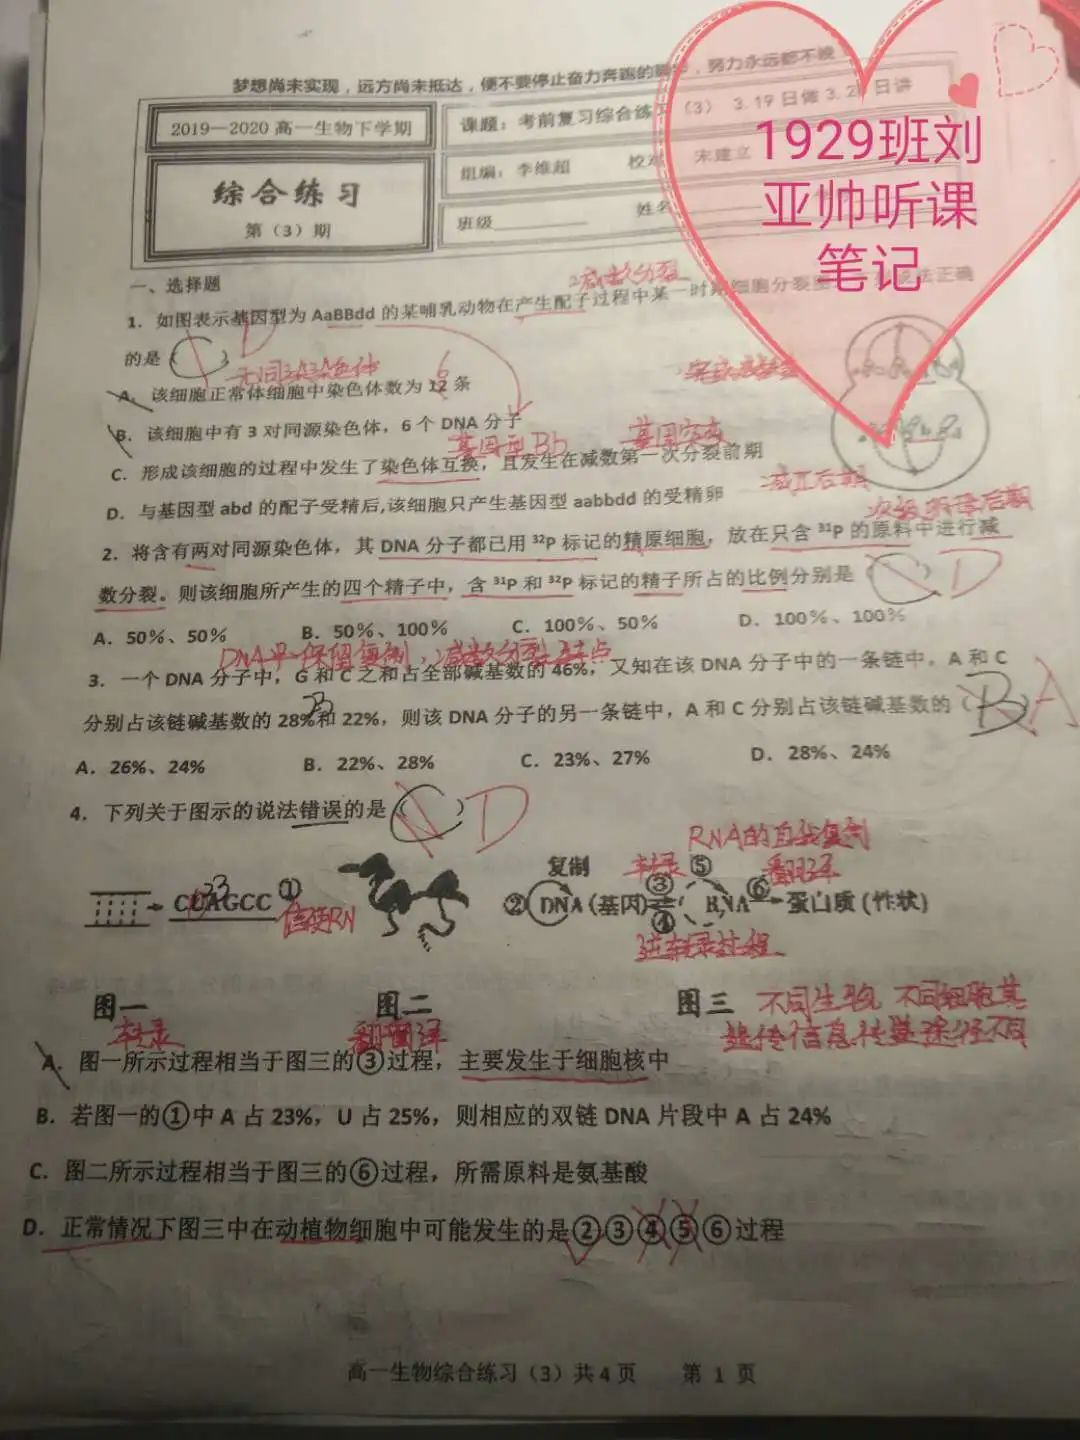 梦想尚未实现，远方尚未抵达，便不要停止奋力奔跑的脚步，努力永远都不晚
2019—2020高一生物下学期
课题：考前复习综合练习（3） 3.19日做3.2 日讲
综合练习
第（3）期
组编：李维超 校对 宋建立
班级 姓名
1929班刘
亚帅听课
笔记
一、选择题
减数分裂
1．如图表示基因型为 AaBBdd 的某哺乳动物在产生配子过程中某一时期细胞分裂图 法正确
的是（ ） D
无同源染色体
A．该细胞正常体细胞中染色体数为 12 条
6
B．该细胞中有 3 对同源染色体，6 个 DNA 分子
基因型Bb 基因突变
C．形成该细胞的过程中发生了染色体互换，且发生在减数第一次分裂前期
减Ⅱ后期
D．与基因型 abd 的配子受精后,该细胞只产生基因型 aabbdd 的受精卵
2．将含有两对同源染色体，其 DNA 分子都已用 ³²P 标记的精原细胞，放在只含 ³¹P 的原料中进行减
数分裂。则该细胞所产生的四个精子中，含 ³¹P 和 ³²P 标记的精子所占的比例分别是（ ） D
A．50%、50% B．50%、100% C．100%、50% D．100%、100%
DNA半保留复制，减数分裂
3．一个 DNA 分子中，G 和 C 之和占全部碱基数的 46%，又知在该 DNA 分子中的一条链中，A 和 C
分别占该链碱基数的 28%和 22%，则该 DNA 分子的另一条链中，A 和 C 分别占该链碱基数的（B）A
A．26%、24% B．22%、28% C．23%、27% D．28%、24%
4．下列关于图示的说法错误的是（ ） D
RNA的自我复制
复制 转录 ⑤ 翻译
CUAGCC ① 信使RN ② DNA（基因） ③ ④ RNA ⑥ 蛋白质（性状）
逆转录过程
图一 图二 图三 不同生物，不同细胞其
转录 翻译 遗传信息传递途径不同
A．图一所示过程相当于图三的③过程，主要发生于细胞核中
B．若图一的①中 A 占 23%，U 占 25%，则相应的双链 DNA 片段中 A 占 24%
C．图二所示过程相当于图三的⑥过程，所需原料是氨基酸
D．正常情况下图三中在动植物细胞中可能发生的是②③④⑤⑥过程
高一生物综合练习（3）共 4 页 第 1 页